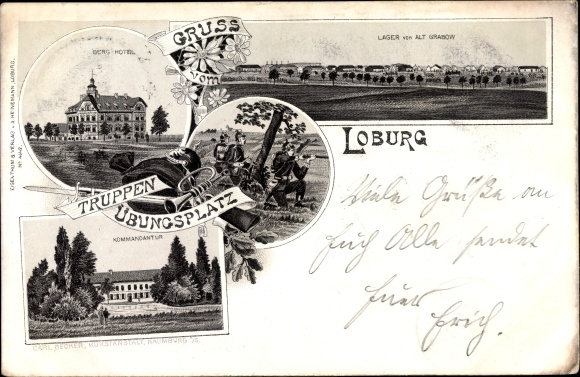 GRUSS
vom
TRUPPEN
ÜBUNGSPLATZ
LOBURG
BERG-HOTEL
LAGER VON ALT GRABOW
KOMMANDANTUR
EIGENTHUM & VERLAG v. J. HEINEMANN, LOBURG.
CARL BECKER, KUNSTANSTALT, NAUMBURG a/S.
Viele Grüße an
Euch Alle sendet
Euer
Erich.